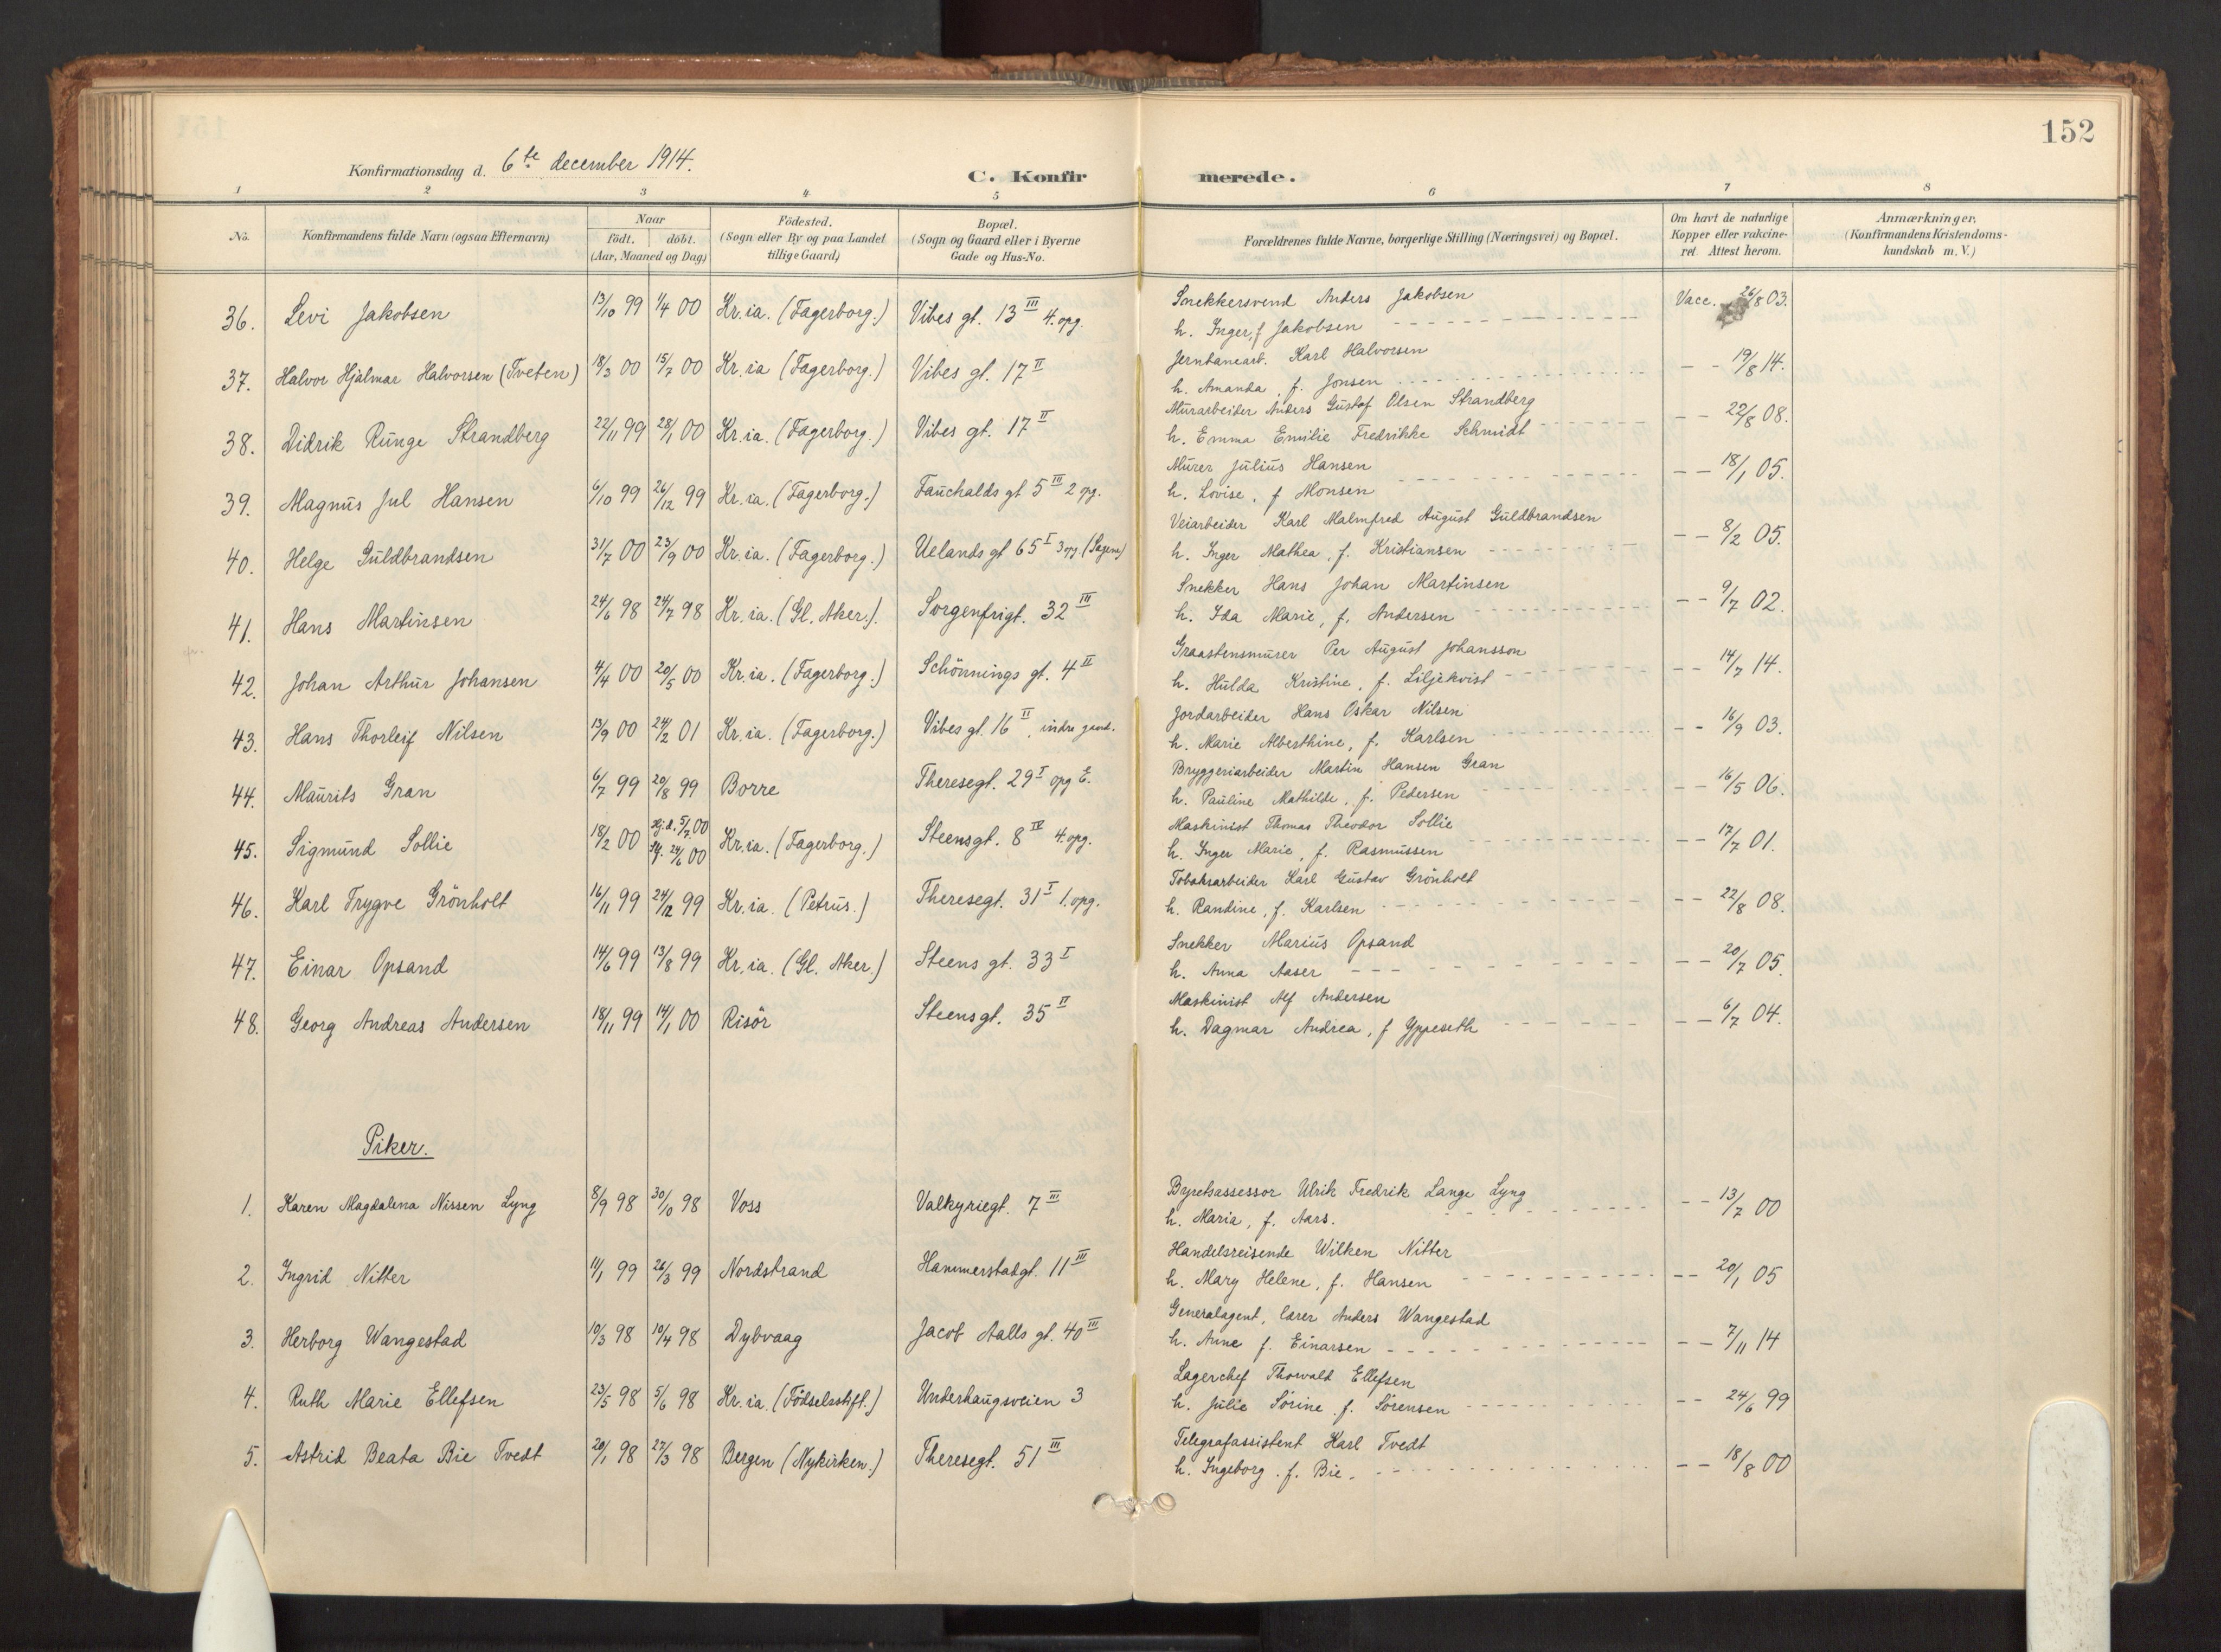 152
Konfirmationsdag d. 6te december 1914.
C. Konfirmerede.
1 2 3 4 5 6 7 8
No. Konfirmandens fulde Navn (ogsaa Efternavn) Naar födt. döbt. (Aar, Maaned og Dag) Födested. (Sogn eller By og paa Landet tillige Gaard) Bopæl. (Sogn og Gaard eller i Byerne Gade og Hus-No. Forældrenes fulde Navne, borgerlige Stilling (Næringsvei) og Bopæl. Om havt de naturlige Kopper eller vakcineret. Attest herom. Anmærkninger. (Konfirmandens Kristendomskundskab m.V.)
36. Levi Jakobsen 13/10 99 1/4 00 Kr.ia. (Fagerborg.) Vibes gt. 13 III 4. opg. Snekkersvend Anders Jakobsen Vacc. 26/8 03.
h. Inger, f. Jakobsen
37. Halvor Hjalmar Halvorsen (Tveten) 18/3 00 15/7 00 Kr.ia (Fagerborg.) Vibes gt. 17 II Jernbanearb. Karl Halvorsen - - 19/8 14.
h. Amanda, f. Jonsen
38. Didrik Runge Strandberg 22/11 99 28/1 00 Kr.ia. (Fagerborg.) Vibes gt. 17 II Murarbeider Anders Gustaf Olsen Strandberg - - 22/8 08.
h. Emma Emilie Fredrikke Schmidt
39. Magnus Jul Hansen 6/10 99 26/12 99 Kr.ia. (Fagerborg.) Fauchalds gt 5 III 2 opg. Murer Julius Hansen - - 18/1 05.
h. Lovise, f Monsen
40. Helge Guldbrandsen 31/7 00 23/9 00 Kr.ia. (Fagerborg.) Uelands gt 65 I 3 opg. (Sagene) Veiarbeider Karl Malmfred August Guldbrandsen - - 8/2 05.
h. Inger Mathea, f. Kristiansen
41. Hans Martinsen 24/6 98 24/7 98 Kr.ia. (Gl. Aker.). Sorgenfrigt. 32 III Snekker Hans Johan Martinsen - - 9/7 02.
h. Ida Marie, f. Andersen
42. Johan Arthur Johansen 4/4 00 20/5 00 Kr.ia. (Fagerborg.) Schönnings gt. 4 II Graastensmurer Per August Johansson - - 14/7 14.
h. Hulda Kristine, f. Liljekvist
43. Hans Thorleif Nilsen 13/9 00 24/2 01 Kr.ia. (Fagerborg.) Vibes gt. 16 II, indre gaard. Jordarbeider Hans Oskar Nilsen - - 16/9 03.
h. Marie Alberthine, f. Karlsen
44. Maurits Gran 6/7 99 20/8 99 Borre Theresegt. 29 I opg E. Bryggeriarbeider Martin Hansen Gran - - 16/5 06.
h. Pauline Mathilde, f. Pedersen
45. Sigmund Sollie 18/2 00 Hj.d. 5/2 00 24/6 00 Kr.ia. (Fagerborg.) Steensgt. 8 IV 4. opg. Maskinist Thomas Theodor Sollie - - 17/7 01.
h. Inger Marie, f. Rasmussen
46. Karl Trygve Grönholt 16/11 99 24/12 99 Kr.ia. (Petrus.) Theresegt. 31 I 1. opg. Tobaksarbeider Karl Gustav Grönholt - - 22/8 08.
h. Randine, f. Karlsen
47. Einar Opsand 14/6 99 13/8 99 Kr.ia. (Gl. Aker.) Steens gt. 33 I Snekker Marius Opsand - - 20/7 05.
h. Anna Aaser
48. Georg Andreas Andersen 18/11 99 14/1 00 Risör Steensgt. 35 II Maskinist Alf Andersen - - 6/7 04.
h. Dagmar Andrea, f Yppeseth
Piker.
1. Karen Magdalena Nissen Lyng 8/9 98 30/10 98 Voss Valkyriegt. 7 III Byretsassessor Ulrik Fredrik Lange Lyng - - 13/7 00
h. Maria, f. Aars.
2. Ingrid Nitter 11/1 99 26/3 99 Nordstrand Hammerstadgt. 11 III Handelsreisende Wilken Nitter - - 20/1 05
h. Mary Helene, f. Hansen
3. Herborg Wangestad 10/3 98 10/4 98 Dybvaag Jacob Aalls gt. 40 III Generalagent, lærer Anders Wangestad - - 7/11 14
h. Anne f. Einarsen
4. Ruth Marie Ellefsen 23/5 98 5/6 98 Kr.ia. (Födselsstift.) Underhaugsveien 3 Lagerchef Thorvald Ellefsen - - 24/6 99
h. Julie Sörine f. Sörensen
5. Astrid Beata Bie Tvedt 20/1 98 27/3 98 Bergen (Nykirken.) Theresegt. 51 III Telegrafassistent Karl Tvedt - - 18/8 00
h. Ingeborg f. Bie.